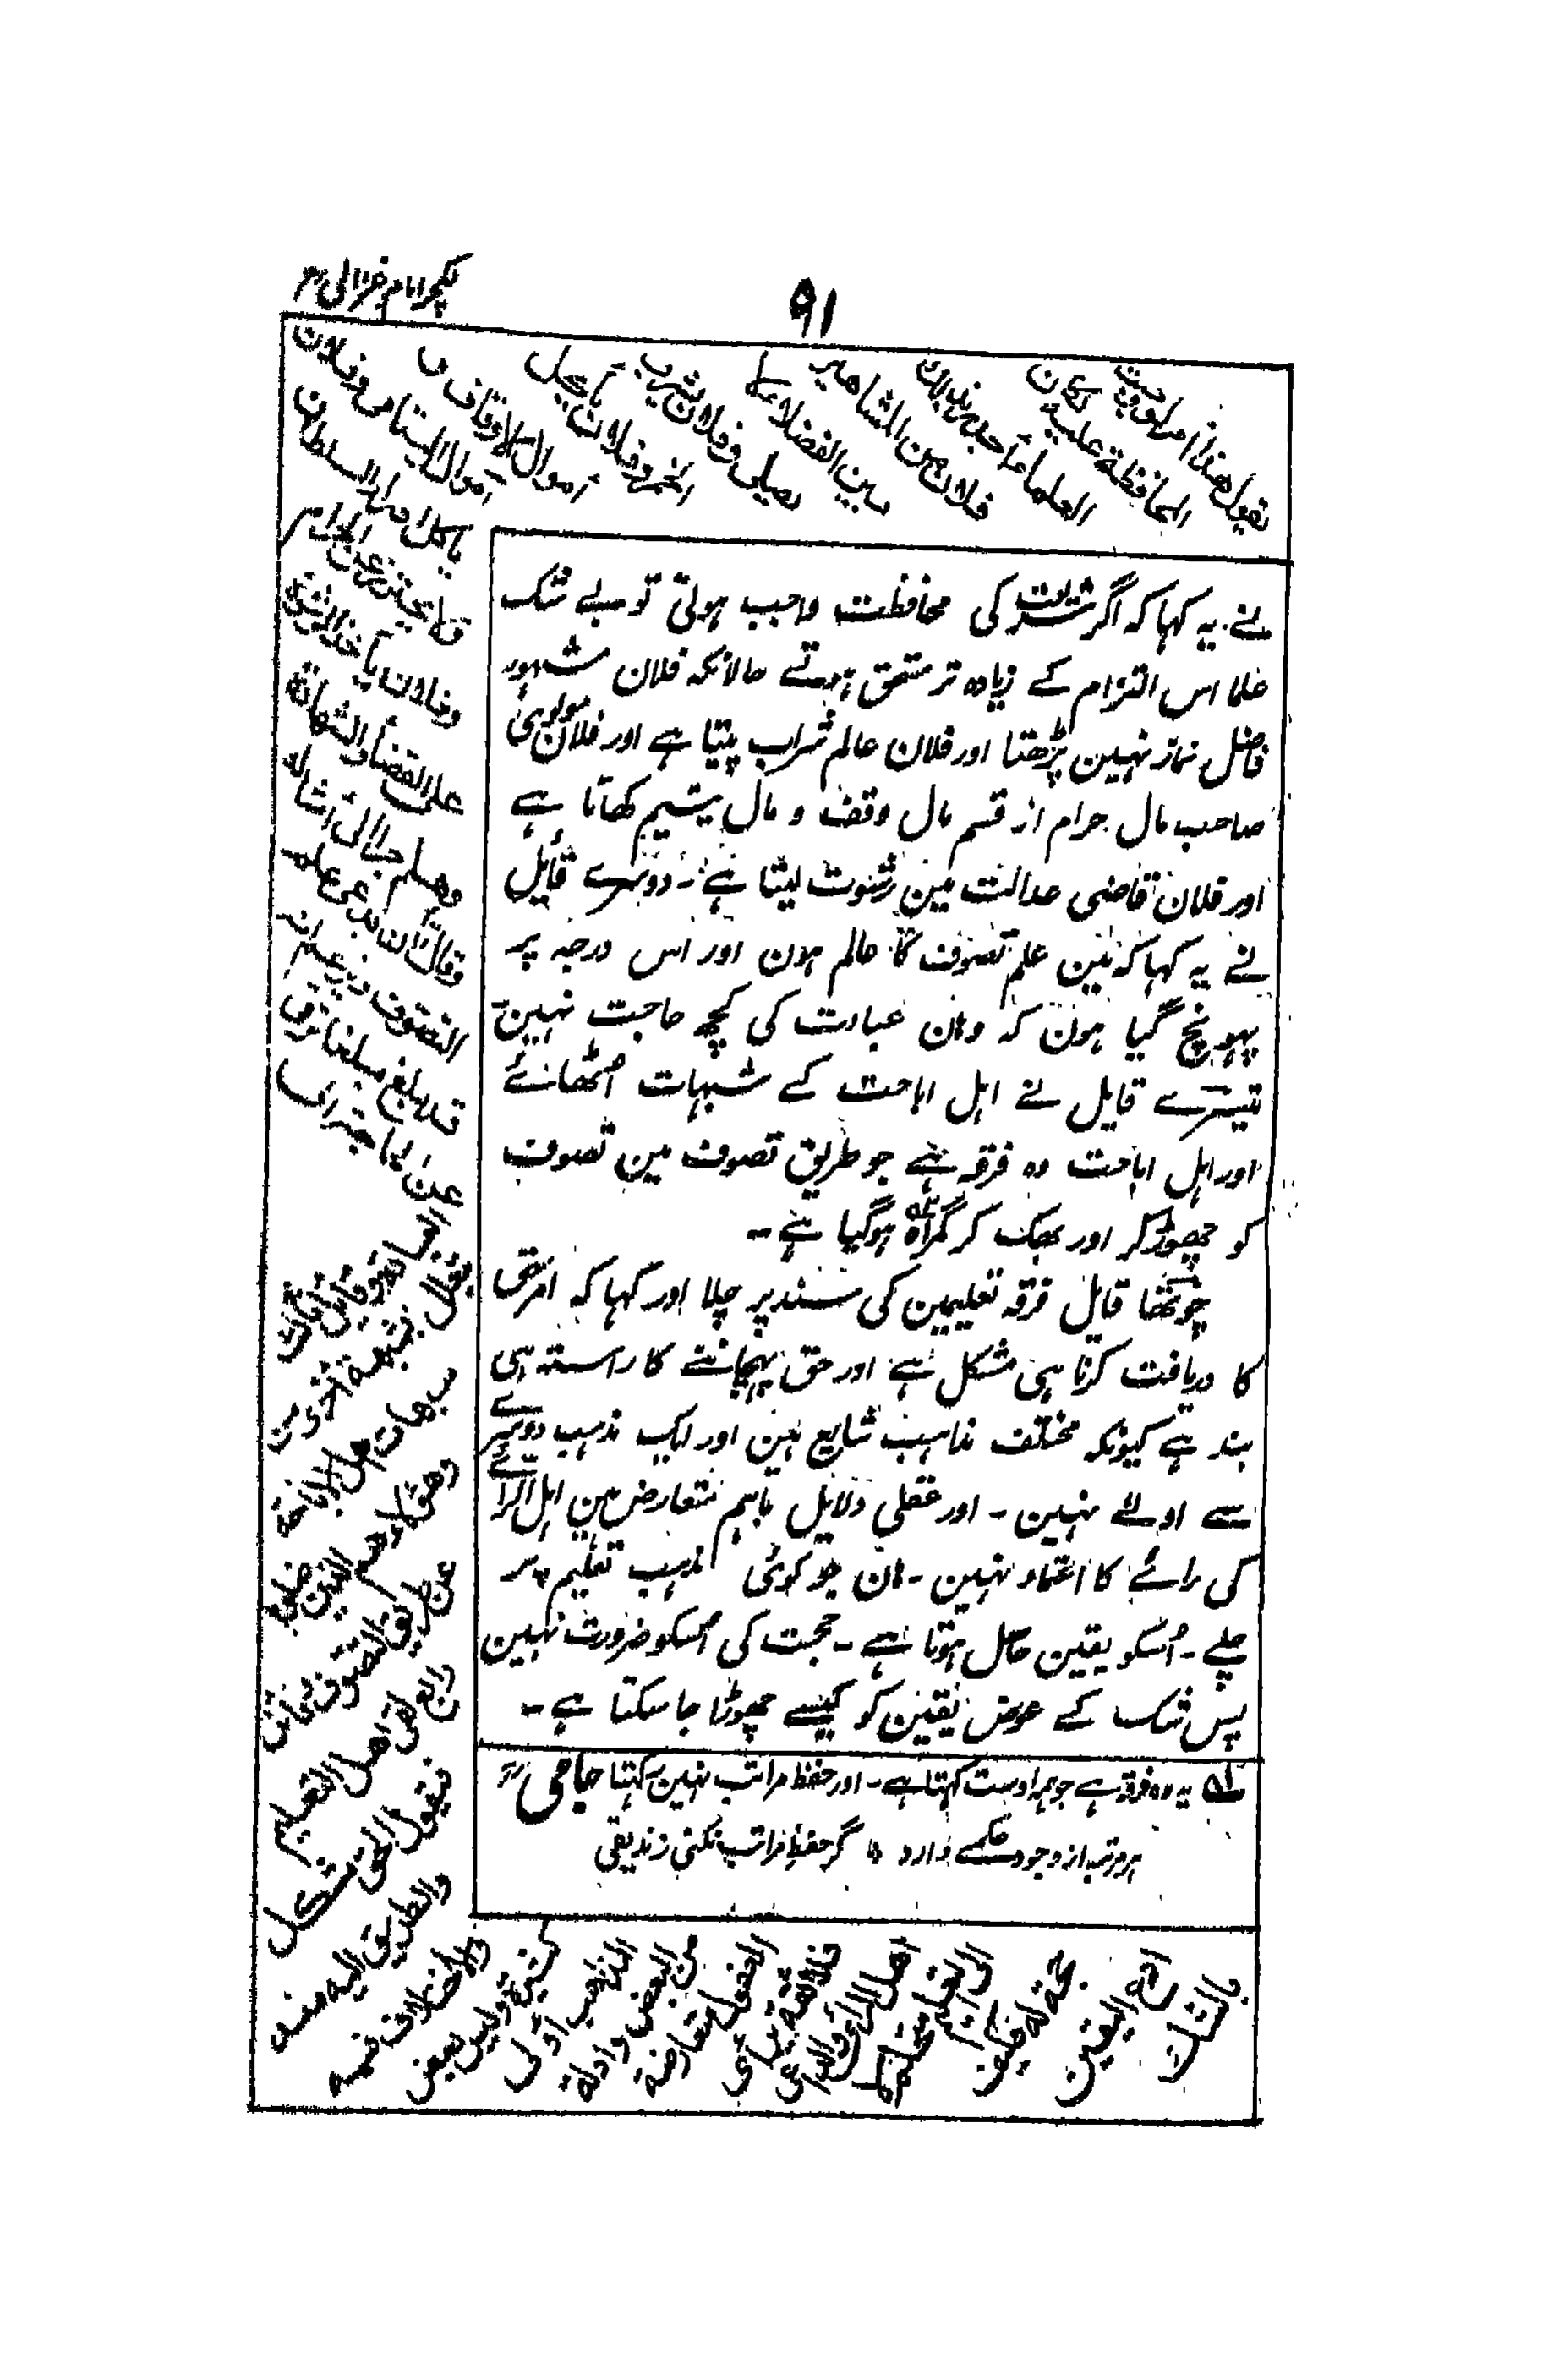 لکچر امام غزالی
۹۱
یقول هذا امر لو وجبت
المحافظة علیه لکان
العلماء أجدر بذلك
فلان من المشاهیر
بین الفضلاء لا
یصلی وفلان یشرب
الخمر وفلان یأکل
أموال الأوقاف و
أموال الیتامی وفلان
یأکل ادرار السلطان
ولا یحترز عن الحرام
وفلان یأخذ الرشوة
علی القضاء والشهادة
وهلم جرا إلی أمثاله
وقائل ثان یدعی علم
التصوف ویزعم انه
قد بلغ مبلغا ترقی
عن الحاجة إلی
العبادة وقائل ثالث
یتعلل بشبهة أخری من
شبهات أهل الإباحة
وهؤلاء هم الذین ضلوا
عن طریق التصوف وقائل
رابع لقی أهل التعلیم
فیقول الحق مشکل
والطریق الیه منسد
والاختلاف فیه
کثیر ولیس بعض
المذاهب أولی
من البعض وأدلة
العقول متعارضة
فلا ثقة برأی
أهل الرأی والداعی
الی التعلیم متحکم لا
حجة له فکیف
ادع الیقین
بالشك
نے یہ کہا کہ اگر شریعت کی محافظت واجب ہوتی تو بے شک
علما اس التزام کے زیادہ تر مستحق ہوتے حالانکہ فلان مشہور
فاضل نماز نہین پڑھتا اور فلان عالم شراب پیتا ہے اور فلان مولوی
صاحب مال حرام از قسم مال وقف و مال یتیم کھاتا ہے
اور فلان قاضی عدالت مین رشوت لیتا ہے۔ دوسرے قایل
نے یہ کہا کہ مین علم تصوف کا عالم ہون اور اس درجہ پر
پہونچ گیا ہون کہ وہان عبادت کی کچھ حاجت نہین
تیسرے قایل نے اہل اباحت کے شبہات اٹھائے
اور اہل اباحت وہ فرقہ ہے جو طریق تصوف مین تصوف
کو چھوڑ کر اور بھٹک کر گمراہ ہوگیا ہے۔
چوتھا قایل فرقہ تعلیمین کی سند پر چلا اور کہا کہ امر حق
کا دریافت کرنا ہی مشکل ہے اور حق پہچاننے کا راستہ ہی
بند ہے کیونکہ مختلف مذاہب شایع ہین اور ایک مذہب دوسرے
سے اولے نہین۔ اور عقلی دلایل باہم متعارض ہین اہل الرائے
کی رائے کا اعتماد نہین۔ ہان جو کوئی مذہب تعلیم پر
چلے۔ اُسکو یقین حاصل ہوتا ہے۔ حجت کی اُسکو ضرورت نہین
پس شک کے عوض یقین کو کیسے چھوڑا جا سکتا ہے۔
لہ یہ وہ فرقہ ہے جو ہمہ اوست کہتا ہے۔ اور حفظ مراتب نہین رکہتا جامی
ہر مرتبہ از وجود حکمے دارد ۔ گر حفظ مراتب نکنی زندیقی